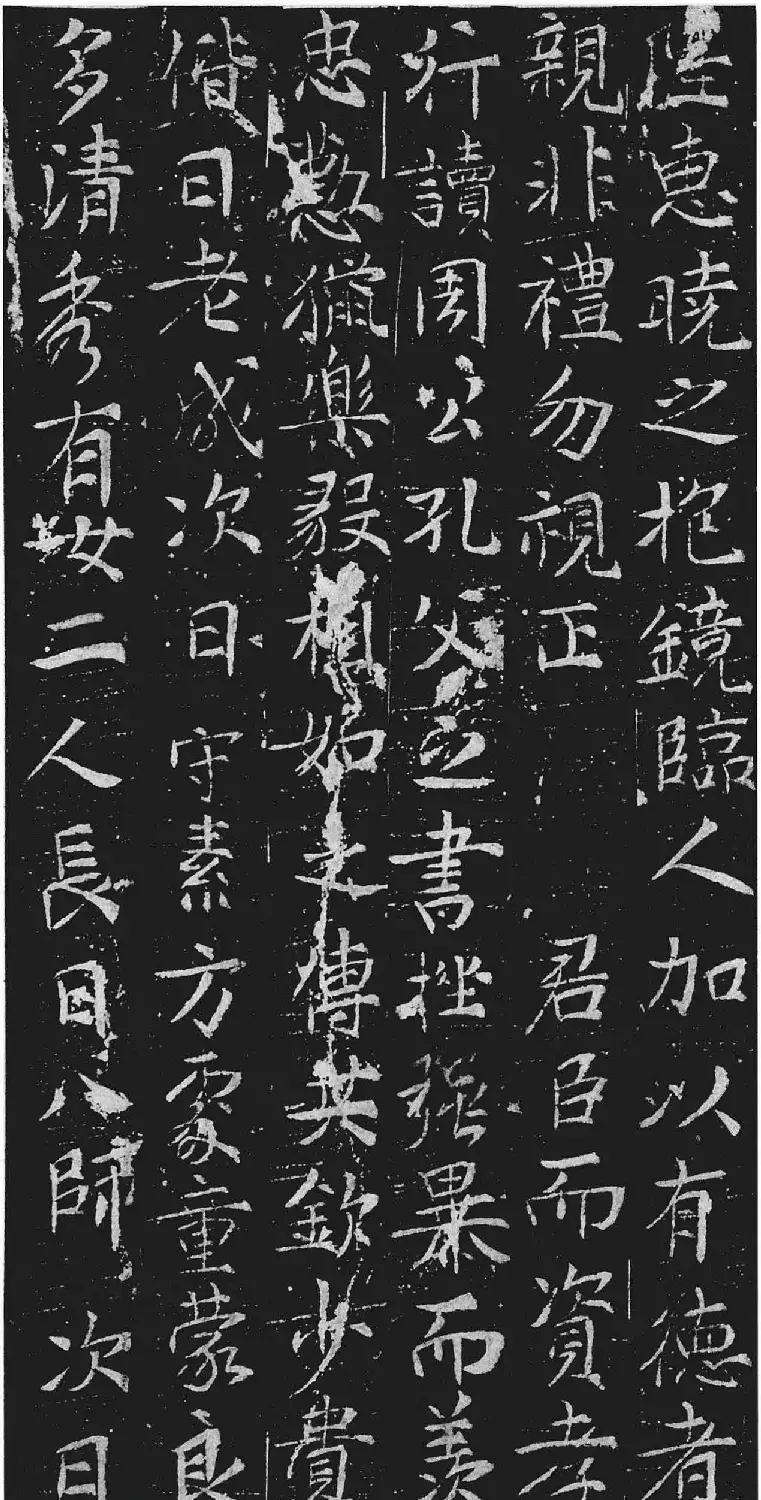 陸惠曉之抱鏡臨人加以有德者
親非禮勿視正 君臣而資孝
行讀周公孔父之書挫強暴而羨
忠懃獵樂毅相如之傳英欽步貴
偕曰老成次曰守素方處童蒙良
多清秀有女二人長曰八師次曰